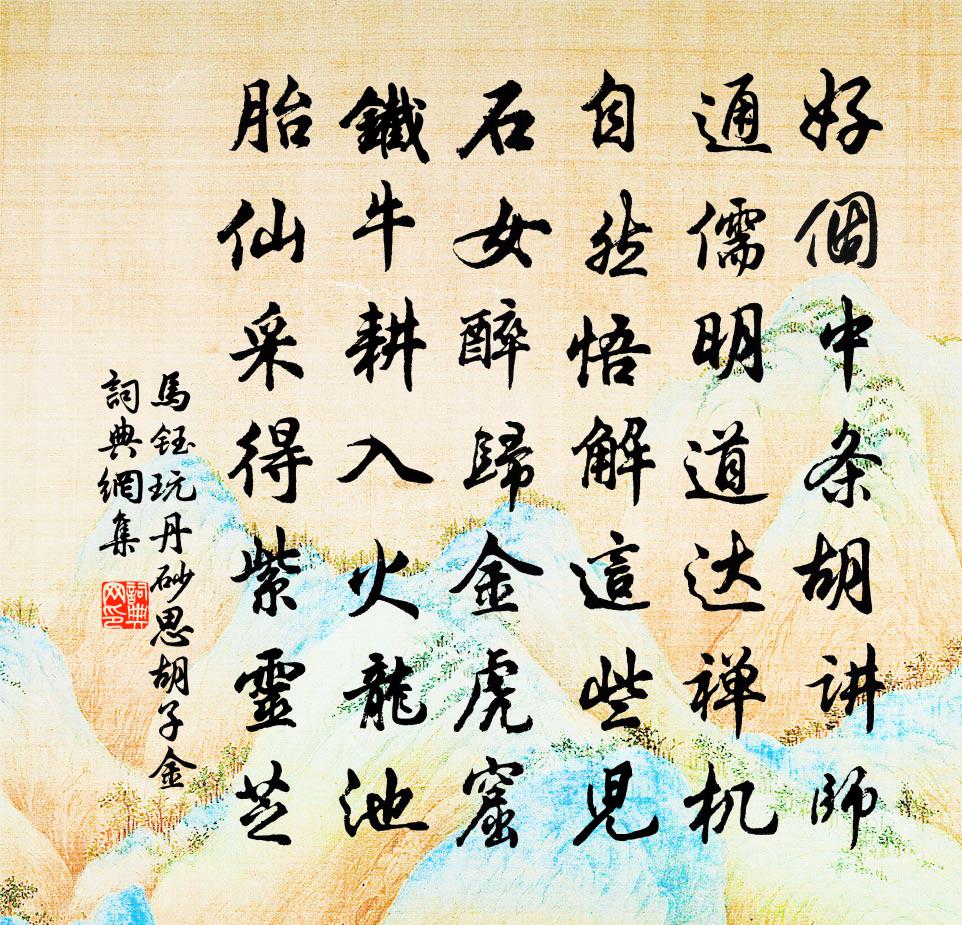 好個中条胡讲師
通儒明道达禅机
自然悟解這些児
石女醉歸金虎窟
鐵牛耕入火龍池
胎仙采得紫靈芝
馬鈺玩丹砂思胡子金
詞典網集
詞典